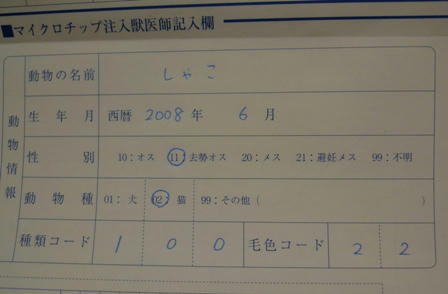 ■マイクロチップ注入獣医師記入欄
動物情報
動物の名前 しゃこ
生年月 西暦 2008 年 6 月
性別 10：オス 11：去勢オス 20：メス 21：避妊メス 99：不明
動物種 01：犬 02：猫 99：その他（ ）
種類コード 1 0 0 毛色コード 2 2